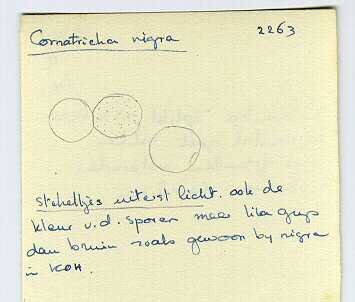 Comatricha nigra
2263
stekeltjes uiterst licht. ook de
kleur v.d. sporen meer lila grijs
dan bruin zoals gewoon by nigra
in KOH.